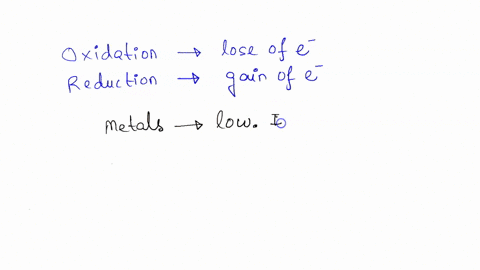 Oxidation → lose of e⁻
Reduction → gain of e⁻
Metals → low. I